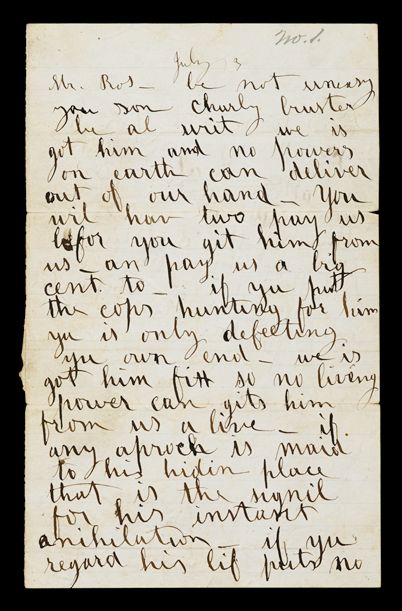 No. 1.
July 3
Mr. Ros_ be not uneasy
you son charly bruster
he al writ we is
got him and no powers
on earth can deliver
out of our hand_ You
wil hav two pay us
befor you git him from
us_ an pay us a big
cent to_ if yu put
the cops hunting for him
yu is only defeeting
yu own end_ we is
got him fitt so no living
power can gits him
from us a live_ if
any aproch is maid
to his hidin place
that is the signil
for his instant
anihilation_ if yu
regard his lif puts no